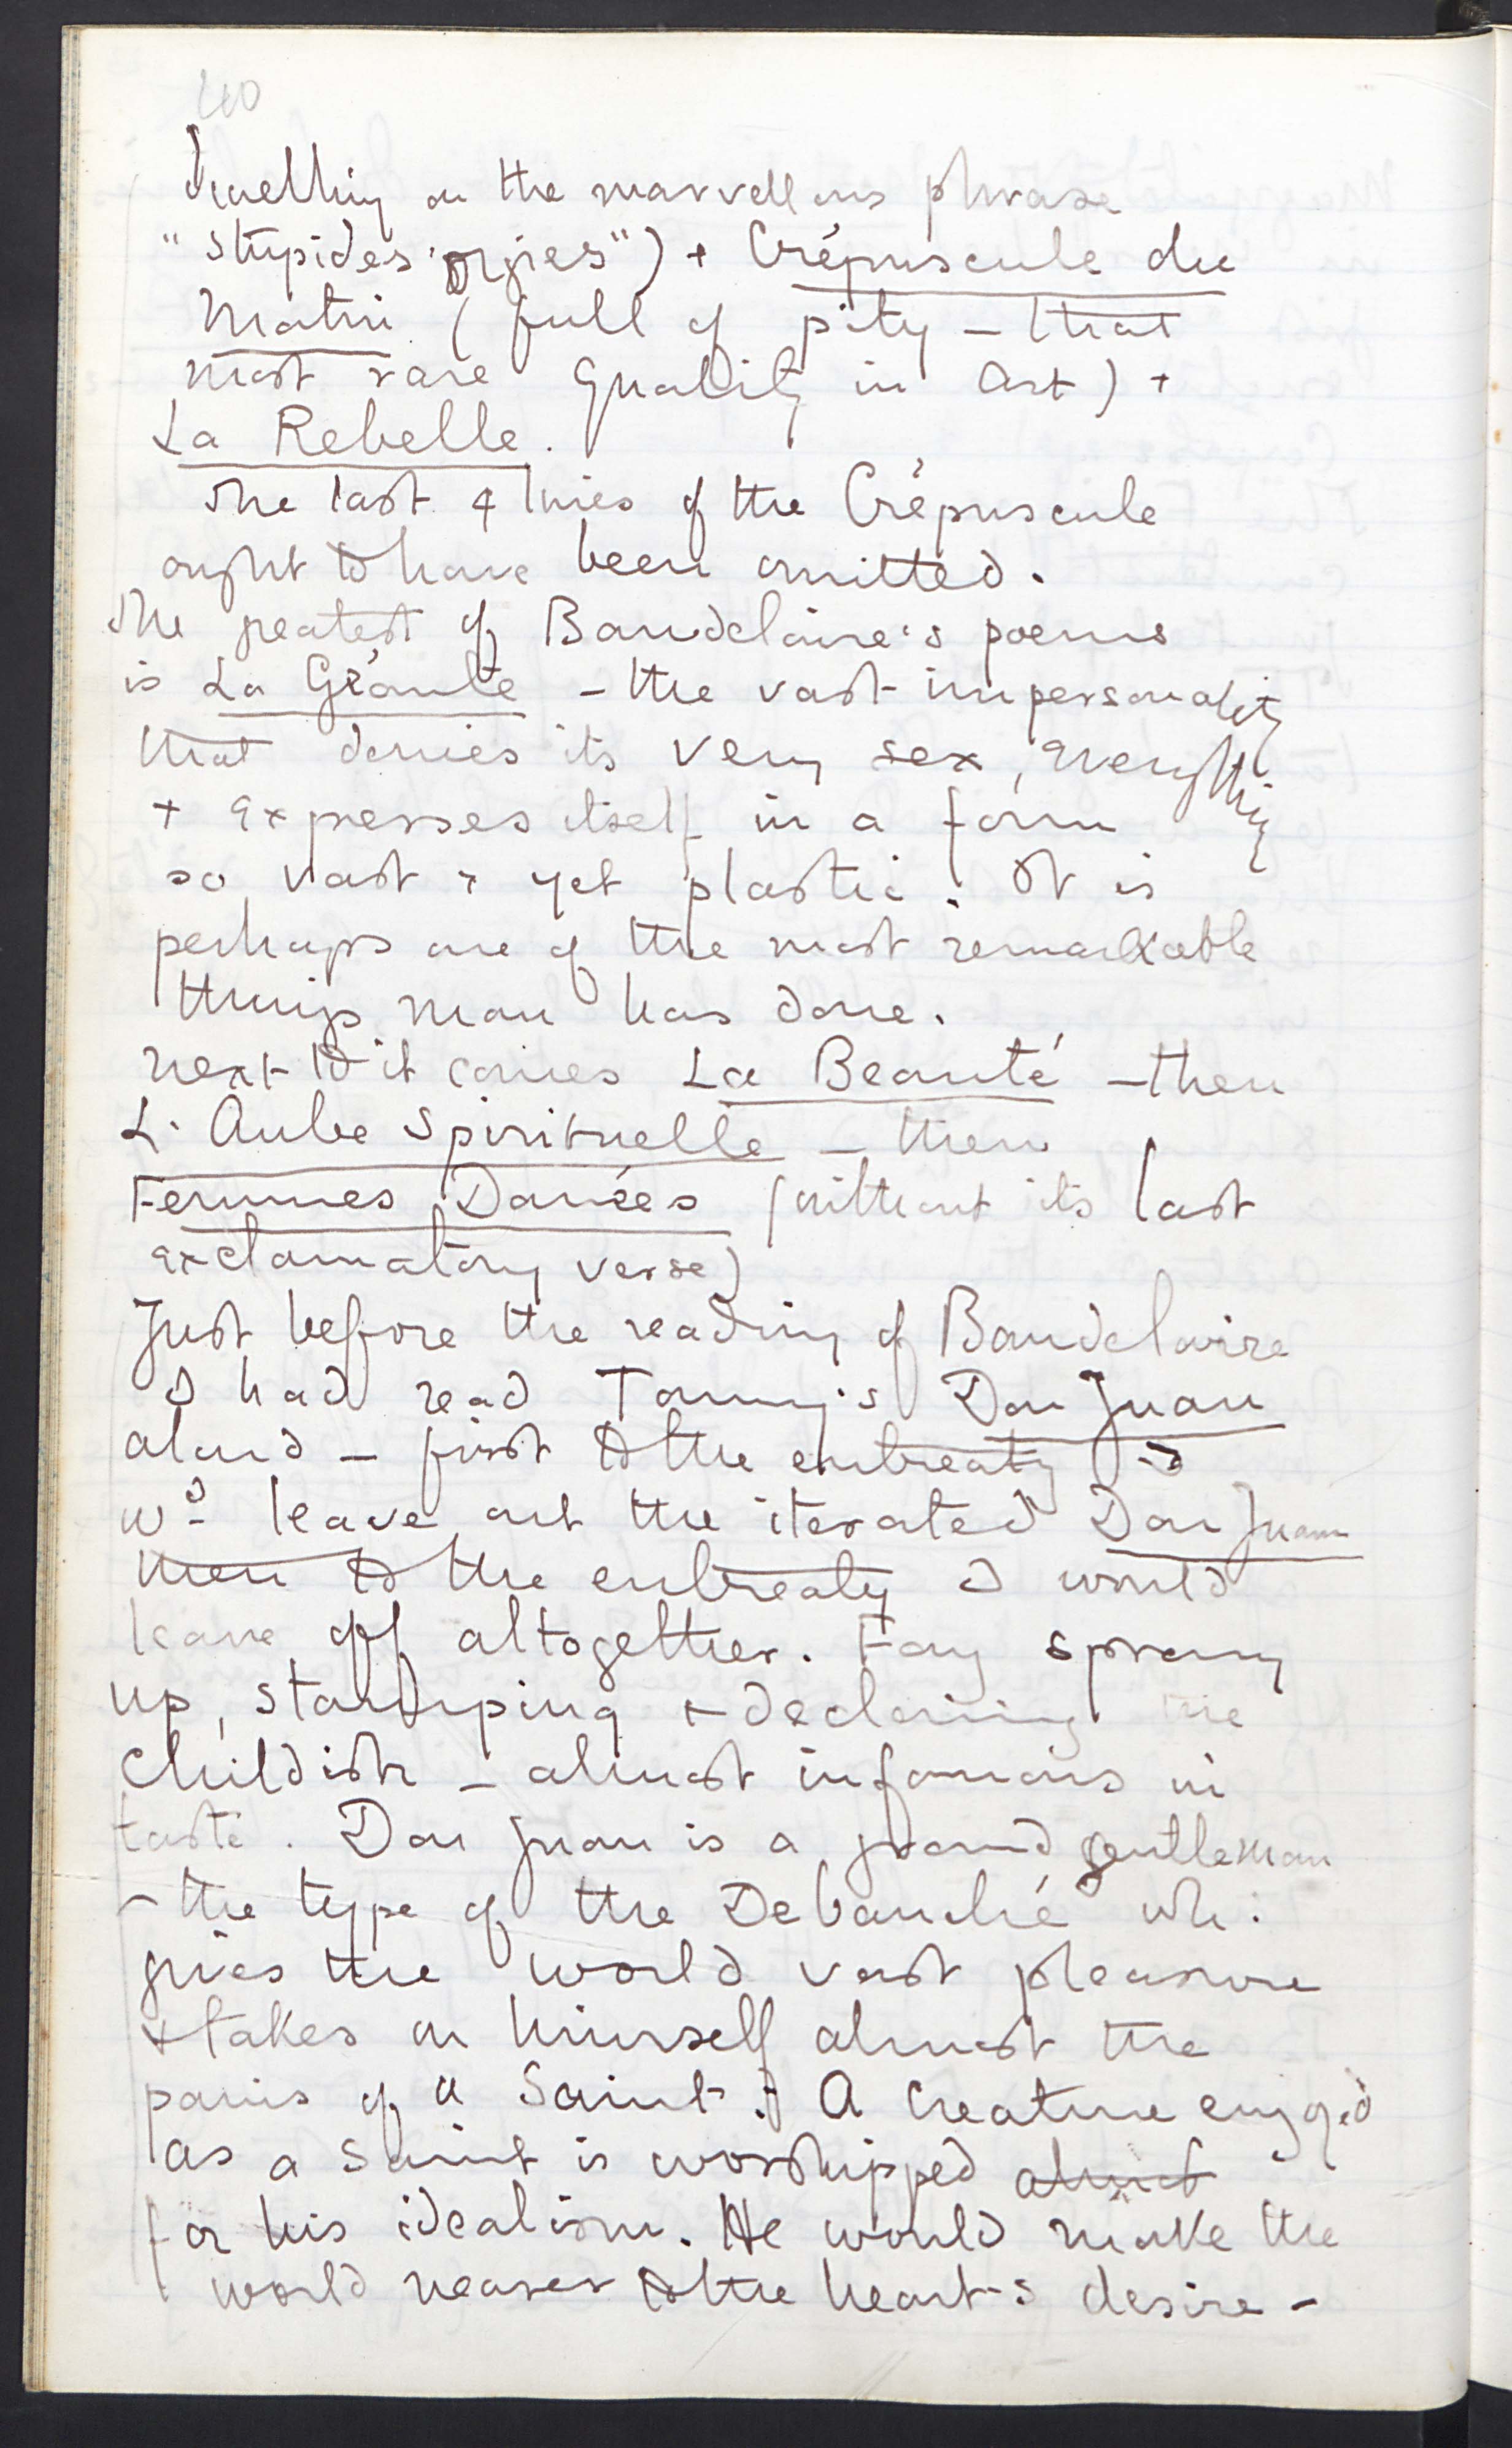 40
dwelling on the marvellous phrase
"stupides orgies") + Crépuscule du
Matin (full of pity – that
most rare quality in Art) +
La Rebelle.
The last 4 lines of the Crépuscule
ought to have been omitted.
The greatest of Baudelaire's poems
is La Géante – the vast impersonality
that denies its very sex, everything
+ expresses itself in a form
so vast + yet plastic. It is
perhaps one of the most remarkable
things man has done.
Next to it comes La Beauté – then
L'Aube Spirituelle – then
Femmes Danées (without its last
exclamatory verse)
Just before the reading of Baudelaire
I had read Tommy's Don Juan
aloud – first to the entreaty I
wd leave out the iterated Don Juan
then to the entreaty I would
leave off altogether. Fay sprang
up, stamping + declaring me
childish – almost infamous in
taste. Don Juan is a grand gentleman
– the type of the Debauché wh.
gives the world vast pleasure
+ takes on himself almost the
pains of a Saint. A creature
as a Saint is worshipped almost
for his idealism. He would make the
world nearer to the heart's desire –